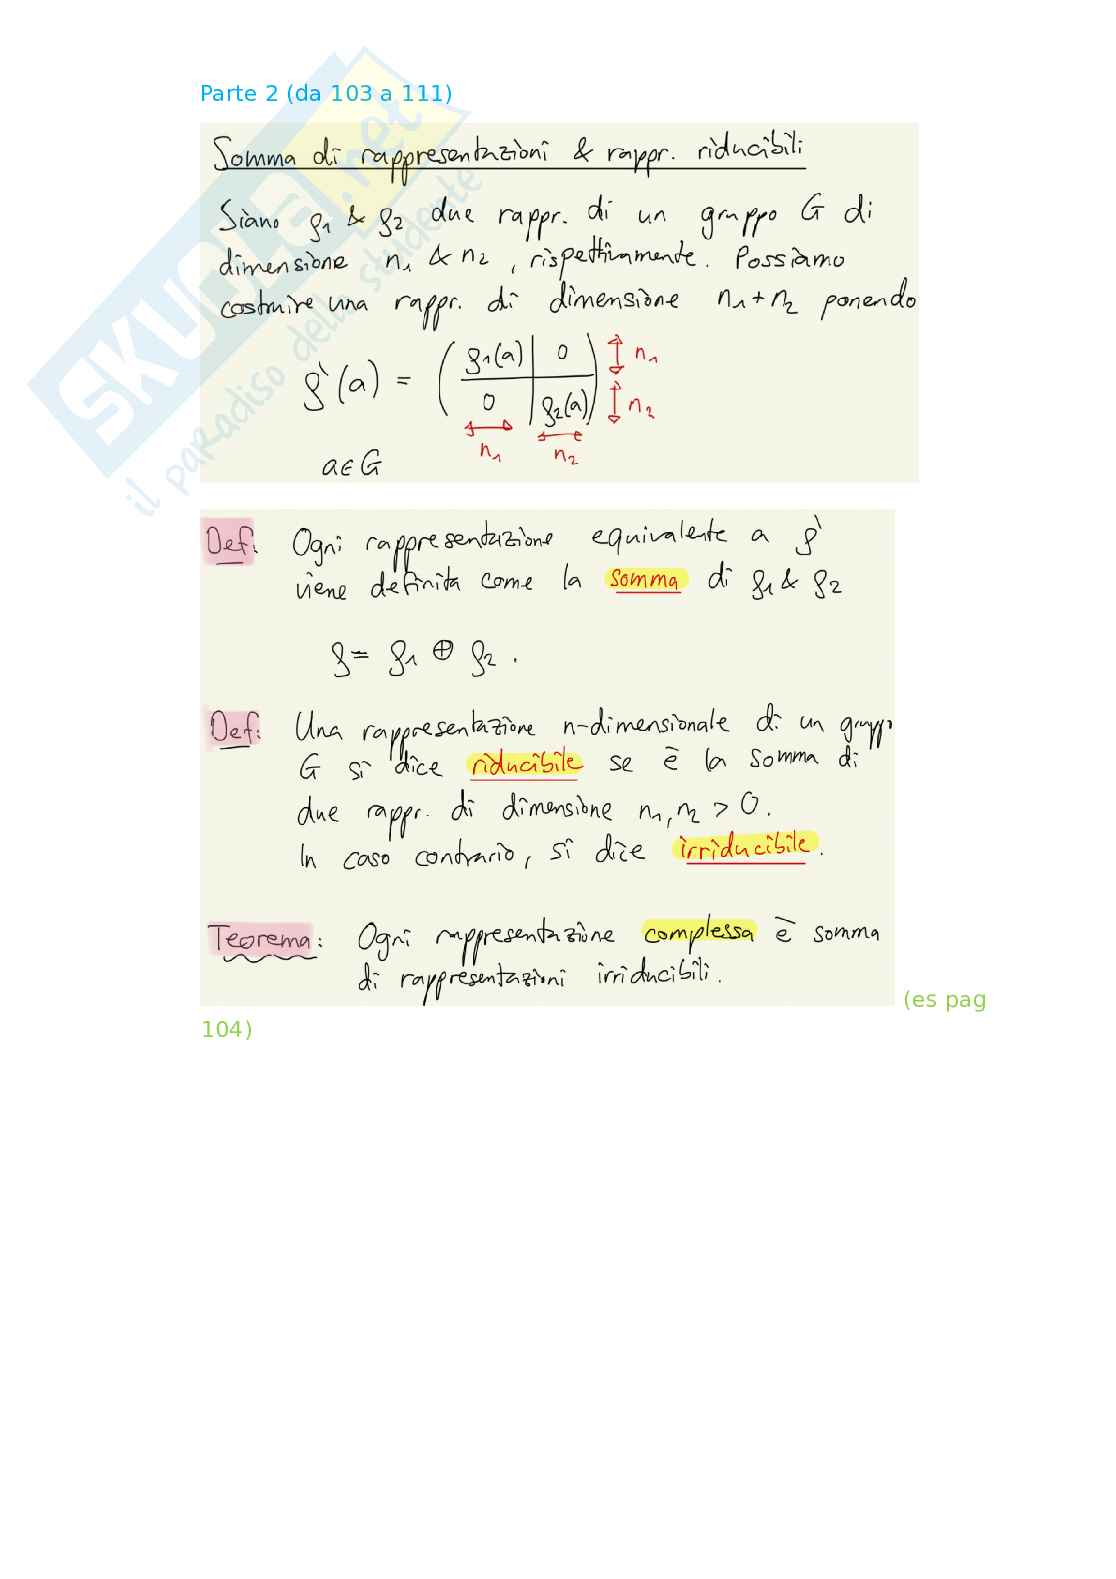 Parte 2 (da 103 a 111)
SKUOLA.net
il paradiso dello studente
Somma di rappresentazioni & rappr. riducibili
Siano ρ1 & ρ2 due rappr. di un gruppo G di
dimensione n1 & n2, rispettivamente. Possiamo
costruire una rappr. di dimensione n1+n2 ponendo
ρ'(a) = ( ρ1(a) | 0 ) n1
( 0 | ρ2(a) ) n2
n1 n2
a∈G
Def. Ogni rappresentazione equivalente a ρ'
viene definita come la somma di ρ1 & ρ2
ρ = ρ1 ⊕ ρ2 .
Def: Una rappresentazione n-dimensionale di un gruppo
G si dice riducibile se è la somma di
due rappr. di dimensione n1, n2 > 0.
In caso contrario, si dice irriducibile.
Teorema: Ogni rappresentazione complessa è somma
di rappresentazioni irriducibili.
(es pag
104)